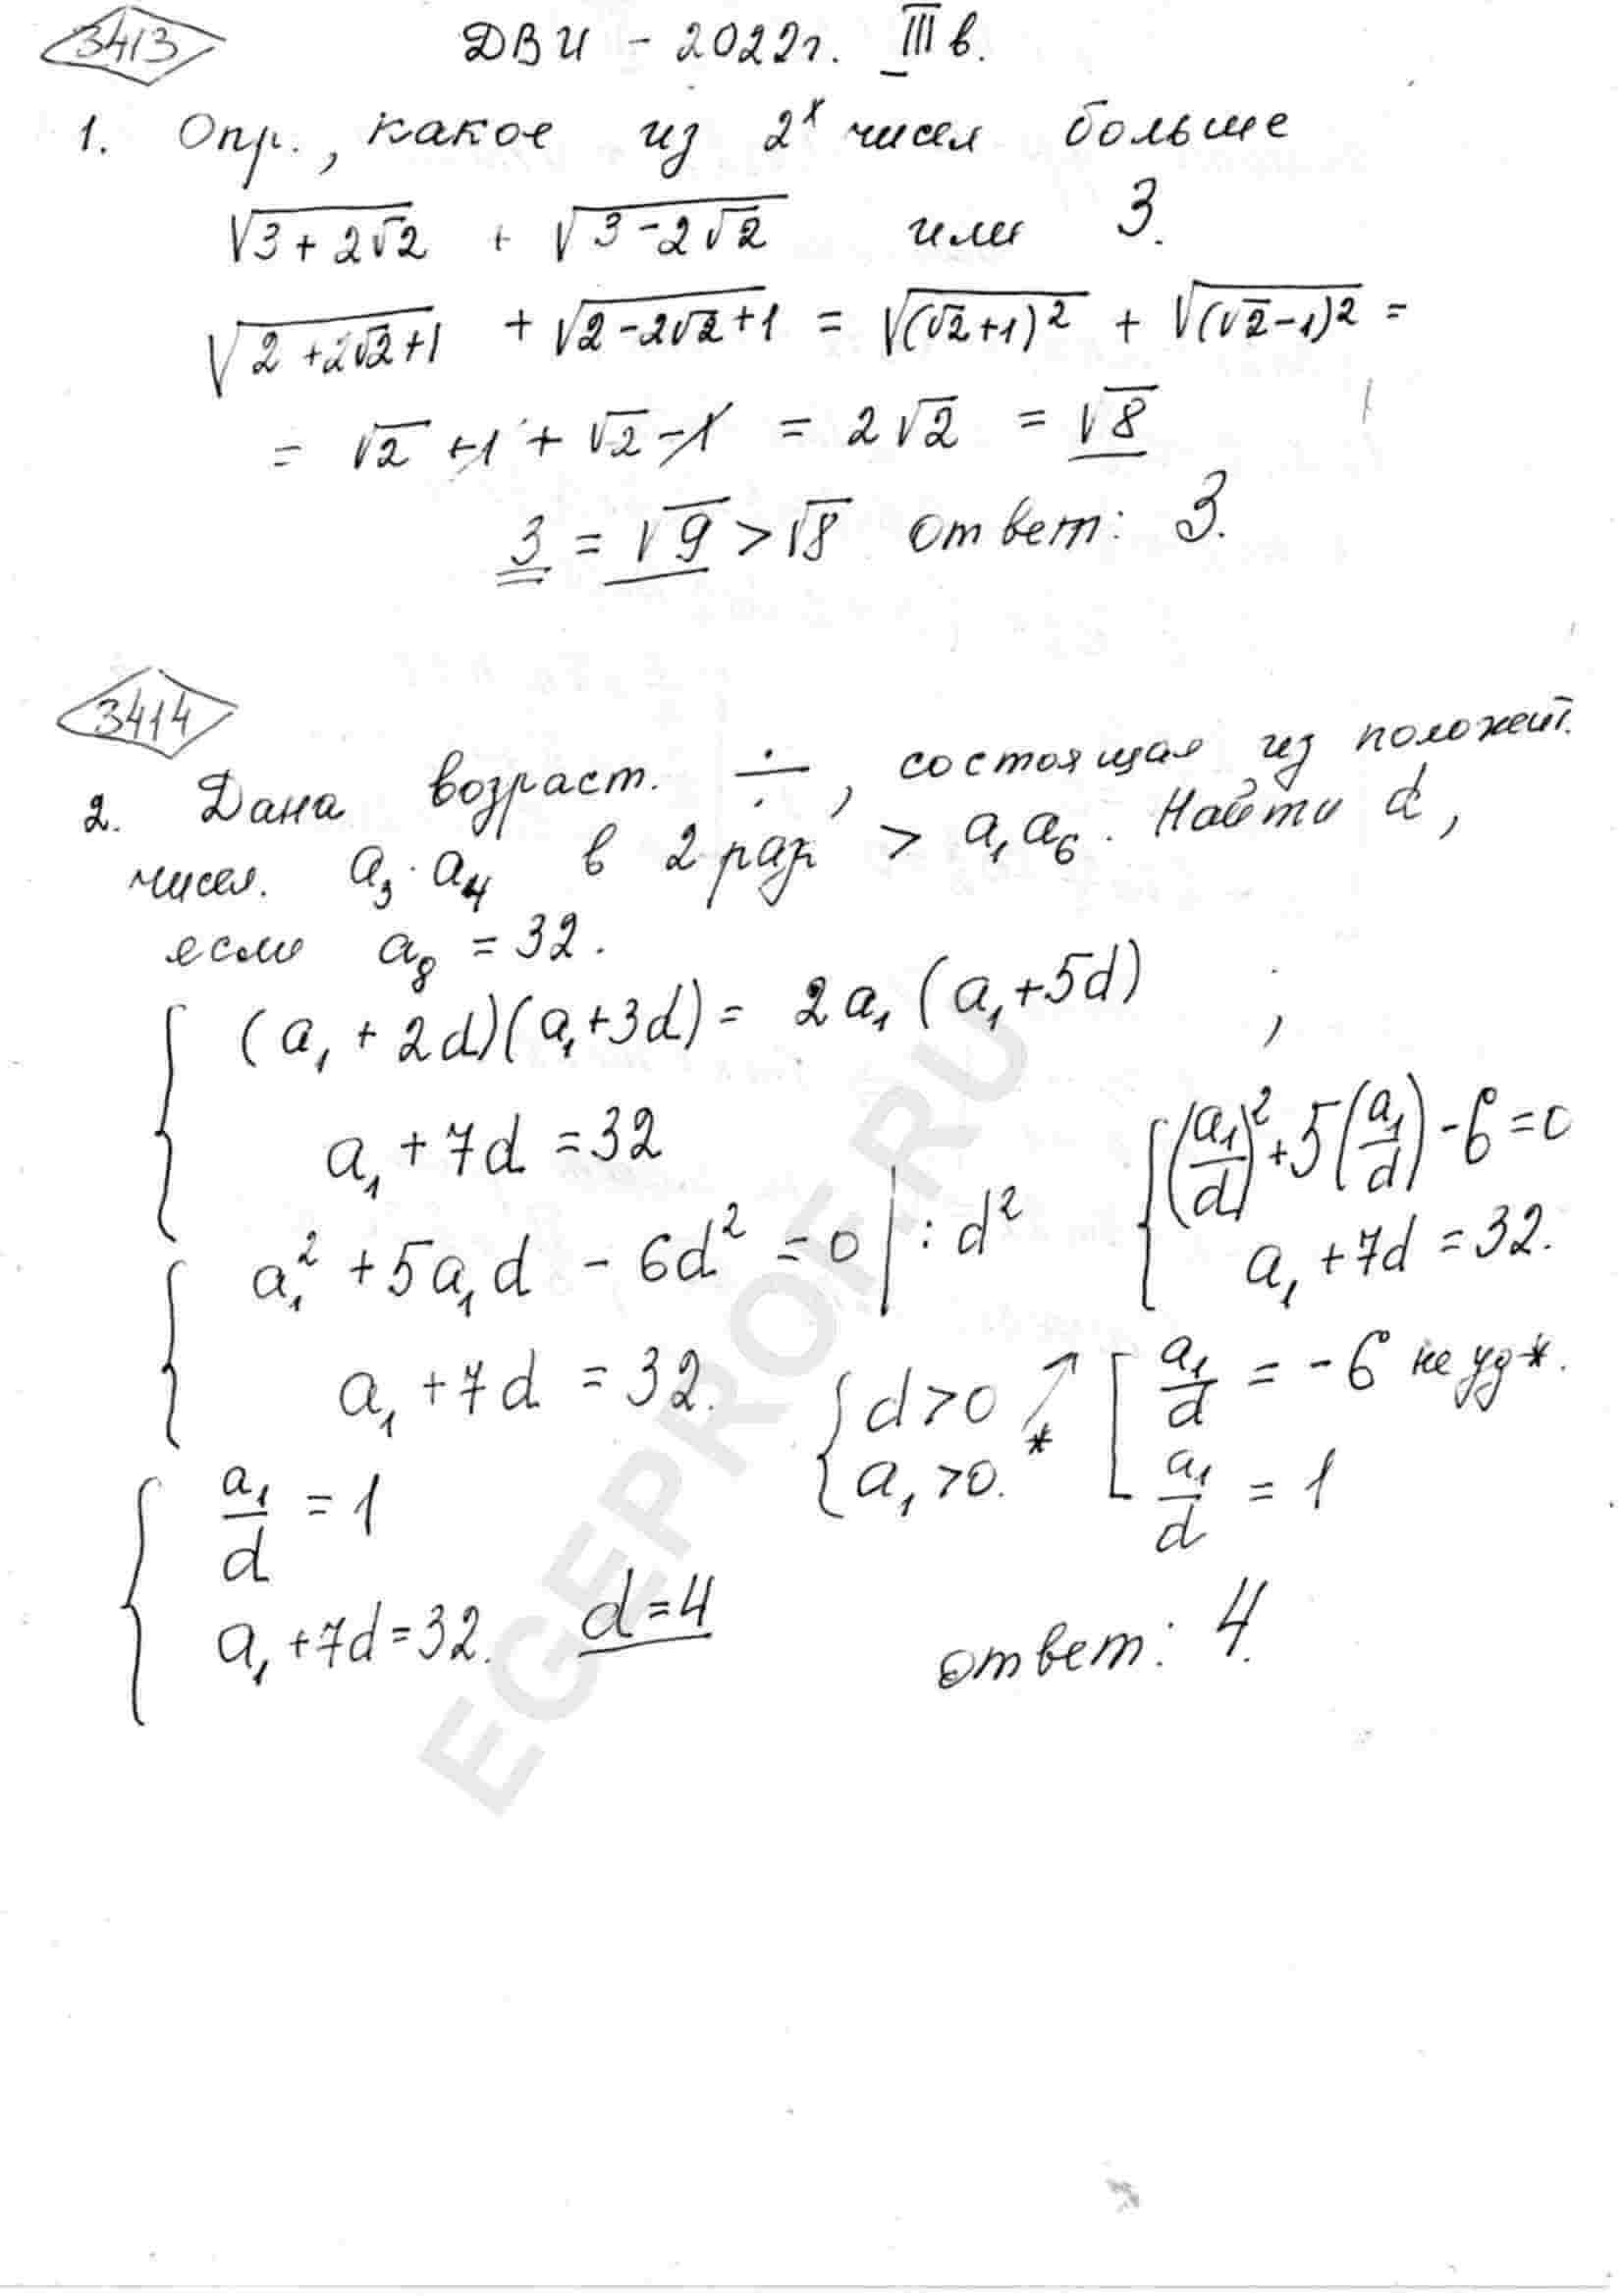 3413
ДВИ - 2022г. III в.
1. Опр., какое из 2х чисел больше
√(3 + 2√2) + √(3 - 2√2) или 3.
√(2 + 2√2 + 1) + √(2 - 2√2 + 1) = √((√2 + 1)²) + √((√2 - 1)²) =
= √2 + 1 + √2 - 1 = 2√2 = √8
3 = √9 > √8 ответ: 3.
3414
2. Дана возраст. ÷, состоящая из положит.
чисел. a₃ · a₄ в 2 раз > a₁a₆. Найти d,
если a₈ = 32.
{ (a₁ + 2d)(a₁ + 3d) = 2a₁(a₁ + 5d) ;
a₁ + 7d = 32
{ a₁² + 5a₁d - 6d² = 0 | : d²
a₁ + 7d = 32.
{ (a₁/d)² + 5(a₁/d) - 6 = 0
a₁ + 7d = 32.
{ d > 0
a₁ > 0. *
[ a₁/d = -6 не уд *.
a₁/d = 1
{ a₁/d = 1
a₁ + 7d = 32. d = 4
ответ: 4.
EGEPROF.RU